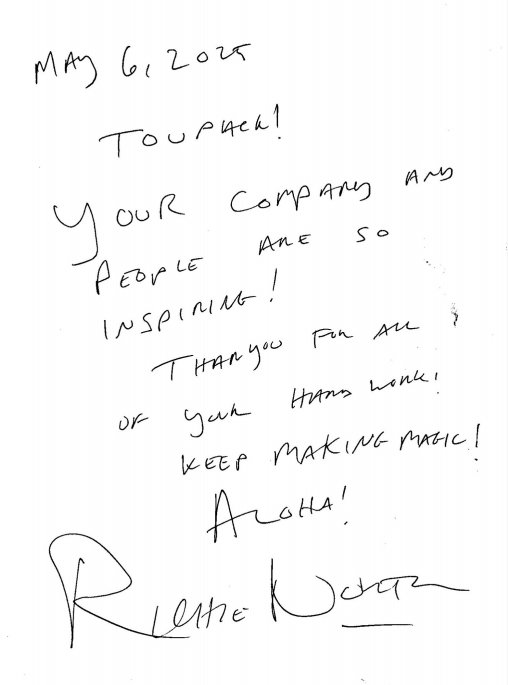 MAY 6, 2025
TOUPACK!
YOUR COMPANY AND
PEOPLE ARE SO
INSPIRING!
THANyou FOR ALL
OF your HARD WORK.
KEEP MAKING MAGIC!
ALOHA!
RICHIE NORTON